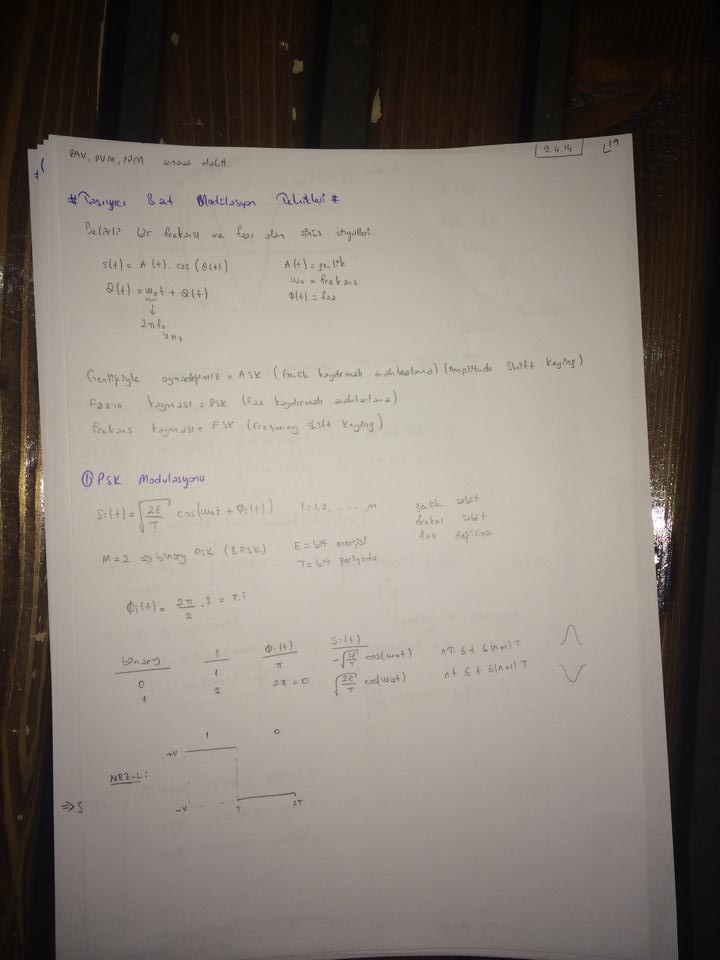 PAV, PVM, PPM sınava dahil.
7.4.14
L19
# Taşıyıcı Bat Modülasyon Teknikleri #
Belirli bir frekansı ve fazı olan sinüs sinyalleri.
s(t) = A(t). cos(θ(t))
A(t) = genlik
θ(t) = w₀t + Q(t)
w₀ = frekans
↓
Φ(t) = faz
2πf₀
Genliğiyle oynadığımız = ASK (Genlik kaydırmalı anahtarlama) (Amplitude Shift Keying)
Fazın kayması = PSK (Faz kaydırmalı anahtarlama)
Frekans kayması = FSK (Frequency Shift Keying)
① PSK Modulasyonu
Si(t) = √(2E/T) cos(w₀t + Φi(t)) i=1,2,....,M
genlik sabit
frekans sabit
faz değişiyor
M=2 ⇒ binary PSK (BPSK)
E = bit enerjisi
T = bit periyodu
Φi(t) = 2π/2 . i = π.i
binary i Φi(t) Si(t)
0 1 π -√(2E/T) cos(w₀t) nT ≤ t ≤ (n+1)T
1 2 2π = 0 √(2E/T) cos(w₀t) nt ≤ t ≤ (n+1)T
1 0
+V
NRZ-L:
-V T 2T
⇒ S